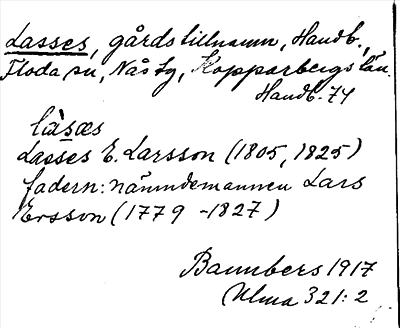 Lasses, gårdstillnamn, Handb.,
Floda sn, Nås tg, Kopparbergs län.
Handb. 74
làsæs
Lasses E. Larsson (1805, 1825)
fadern: nämndemannen Lars
Ersson (1779 - 1827)
Bannbers 1917
Ulma 321:2